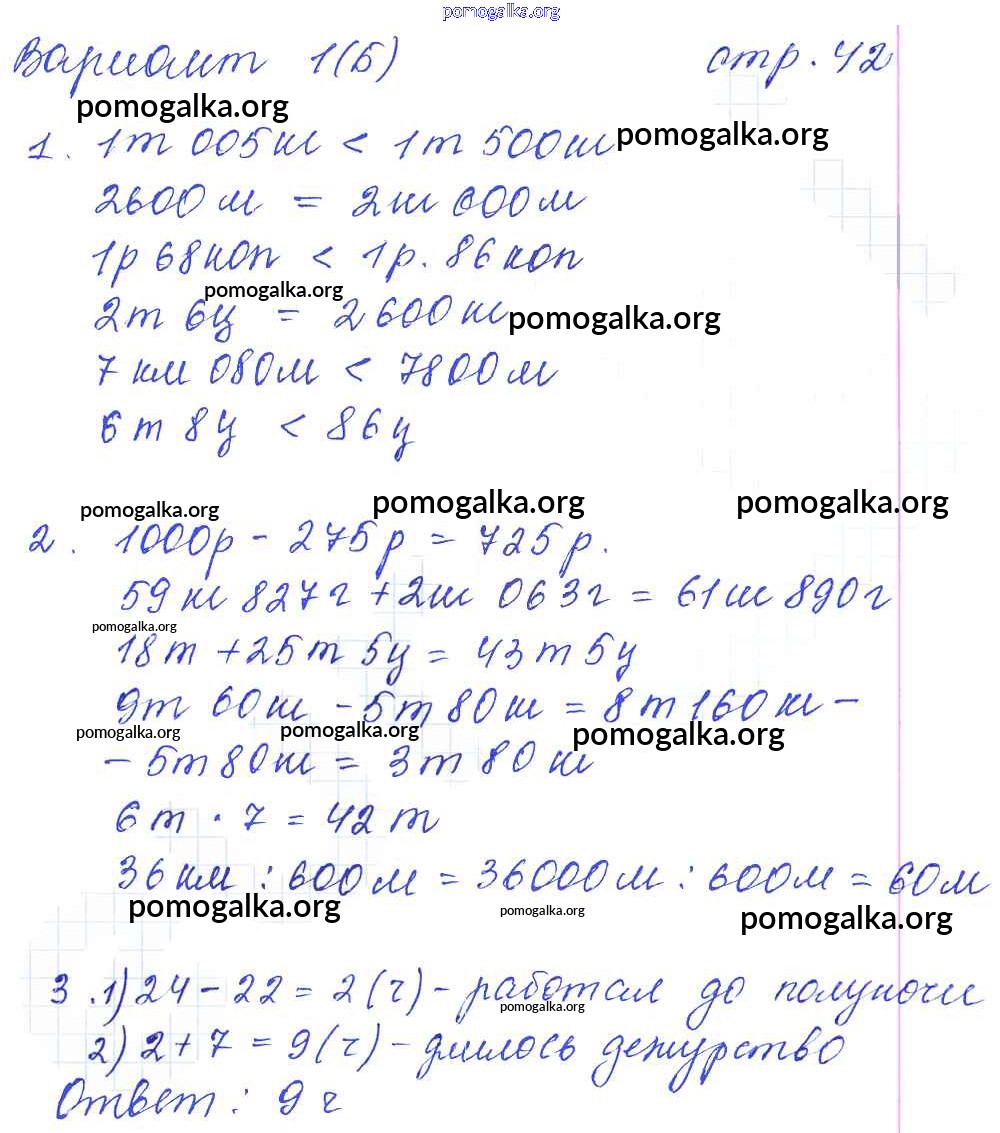 pomogalka.org
Вариант 1(Б) стр. 42
pomogalka.org
1. 1т 005кг < 1т 500кг pomogalka.org
2600 м = 2км 600м
1р 68коп < 1р. 86коп
pomogalka.org
2т 6ц = 2600 кг pomogalka.org
7 км 080м < 7800м
6 т 8ц < 86ц
pomogalka.org pomogalka.org pomogalka.org
2. 1000р - 275р = 725р.
59 кг 827г + 2кг 063г = 61кг 890г
pomogalka.org
18т + 25т 5ц = 43т 5ц
9т 60кг - 5т 80кг = 8т 160кг -
pomogalka.org pomogalka.org pomogalka.org
- 5т 80кг = 3т 80кг
6 т · 7 = 42 т
36 км : 600м = 36000м : 600м = 60м
pomogalka.org pomogalka.org pomogalka.org
3. 1) 24 - 22 = 2 (ч) - работал до полуночи
pomogalka.org
2) 2 + 7 = 9 (ч) - длилось дежурство
Ответ: 9 ч